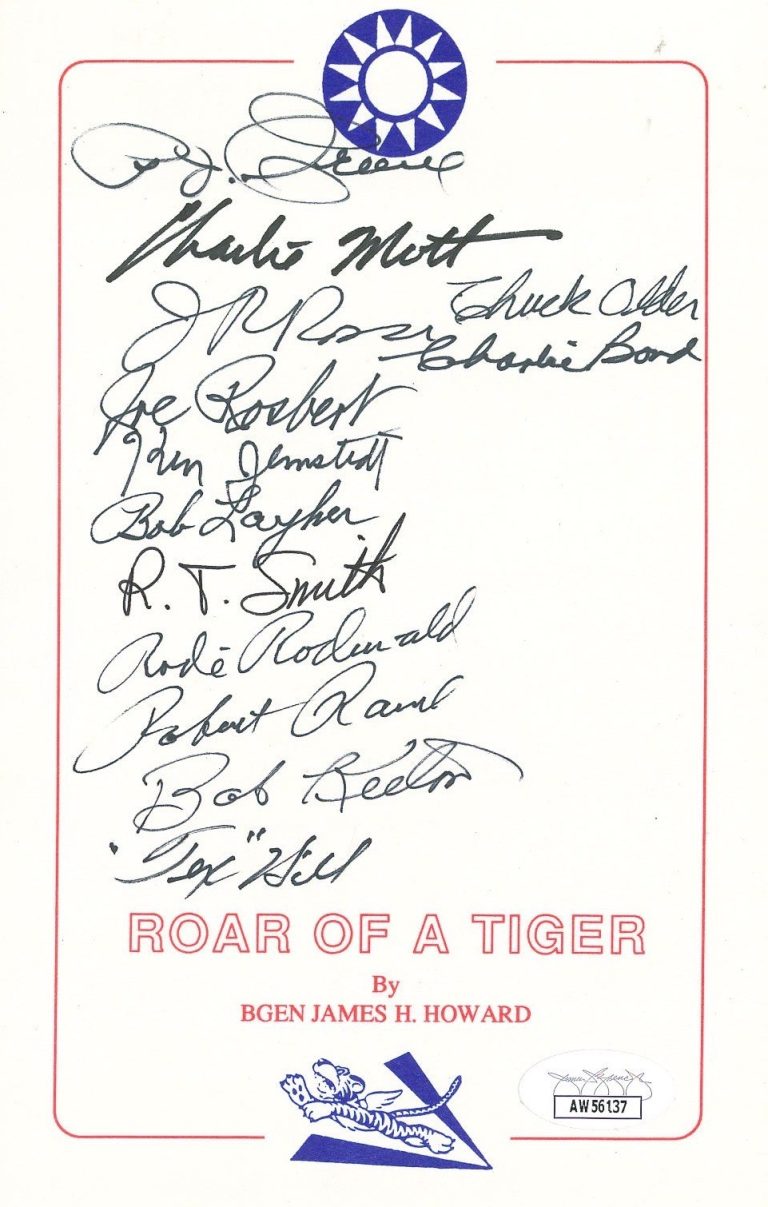 P. J. Greene
Charlie Mott
J R Rossi
Chuck Older
Charlie Bond
Joe Rosbert
Ken Jernstedt
Bob Layher
R. T. Smith
Rode Rodewald
Robert Raine
Bob Keeton
"Tex" Hill
ROAR OF A TIGER
By
BGEN JAMES H. HOWARD
AW56137